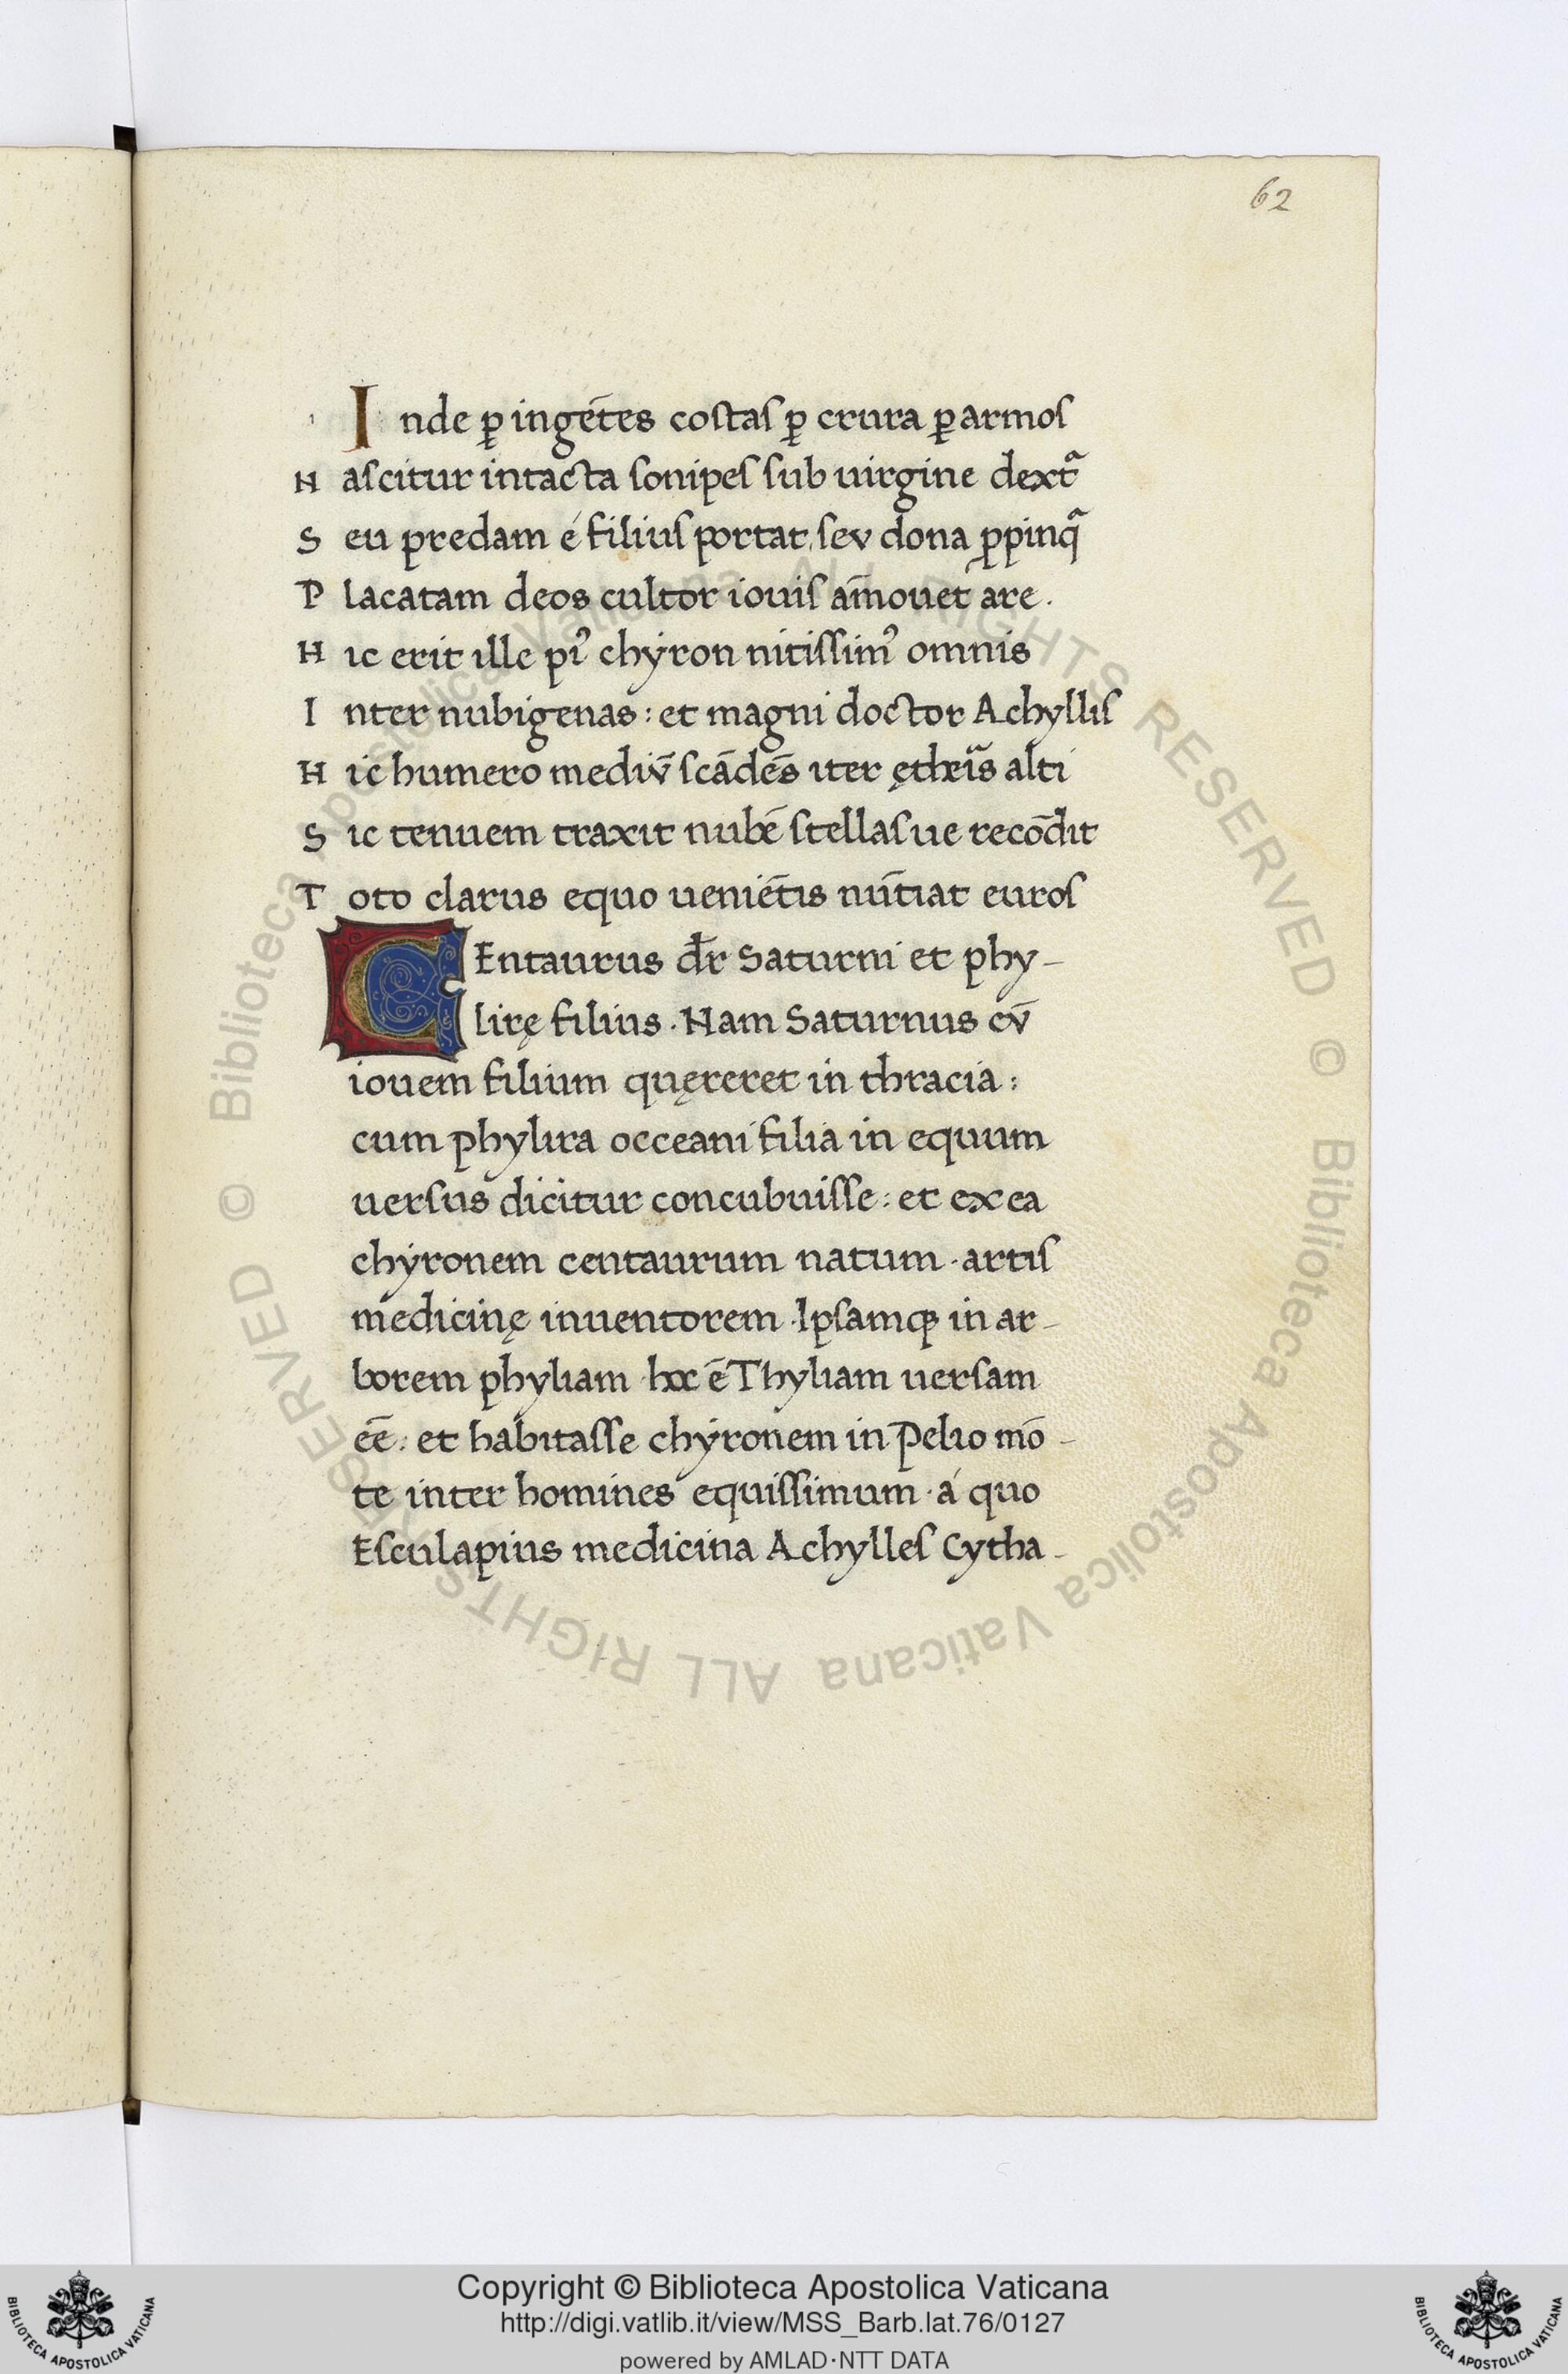 62
Inde ꝑ ingētes costas ꝑ crura ꝑ armos
Nascitur intacta sonipes sub uirgine dextͣ
Seu predam é filius portat, sev dona ꝓpinqͣ
Placatam deos cultor iouis am̄ouet are.
Hic erit ille piꝰ chyron nitissimꝰ omnis
Inter nubigenas: et magni doctor Achyllis
Hic humero mediv̄ scādēs iter ętheiͣs alti
Sic tenuem traxit nubē stellasue recōdit
Toto clarus equo ueniētis nūtiat euros
CEntaurus dr̄ Saturni et phy-
lirę filius. Nam Saturnus cv̄
iouem filium quęreret in thracia:
cum phylira occeani filia in equum
uersus dicitur concubuisse: et ex ea
chyronem centaurum natum. artis
medicinę inuentorem. Ipsamqꝫ in ar-
borem phyliam hoc ē Thyliam uersam
eē: et habitasse chyronem in Pelio mō-
te inter homines equissimum. á quo
Esculapius medicina Achylles Cytha-
© Biblioteca Apostolica Vaticana ALL RIGHTS RESERVED
© Biblioteca Apostolica Vaticana ALL RIGHTS RESERVED
Copyright © Biblioteca Apostolica Vaticana
http://digi.vatlib.it/view/MSS_Barb.lat.76/0127
powered by AMLAD·NTT DATA
BIBLIOTECA APOSTOLICA VATICANA
BIBLIOTECA APOSTOLICA VATICANA